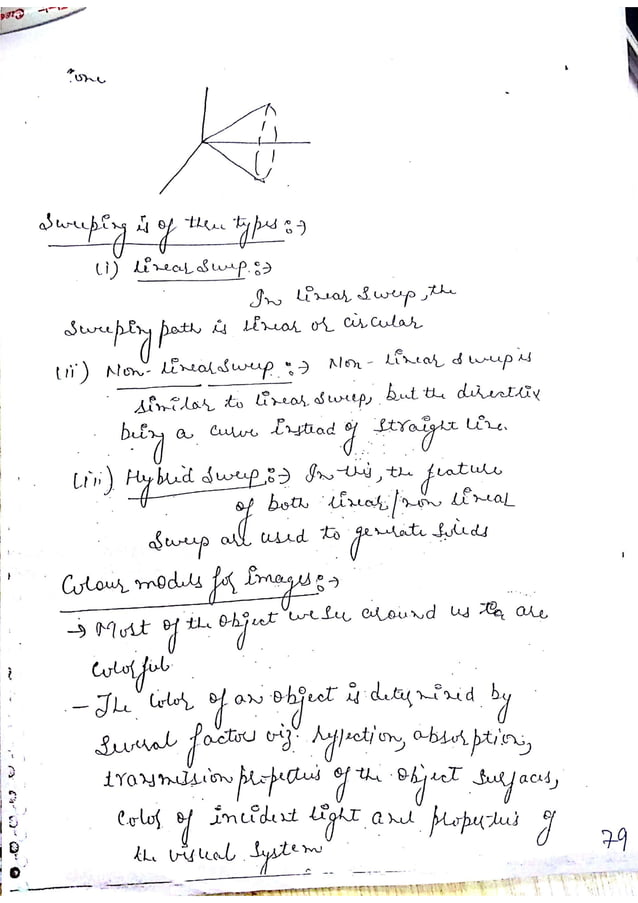 Sweeping is of three types:→
(i) Linear Sweep:→
In linear sweep, the
sweeping path is linear or circular
(ii) Non-linear sweep:→ Non-linear sweep is
similar to linear sweep, but the directrix
being a curve instead of straight line.
(iii) Hybrid sweep:→ In this, the feature
of both linear/non lineal
sweep are used to generate solids
Colour models for images:→
→ Most of the object we see around us are
colorful.
- The color of an object is determined by
several factors viz. reflection, absorption,
transmission properties of the object surfaces,
color of incident light and properties of
the visual system
79